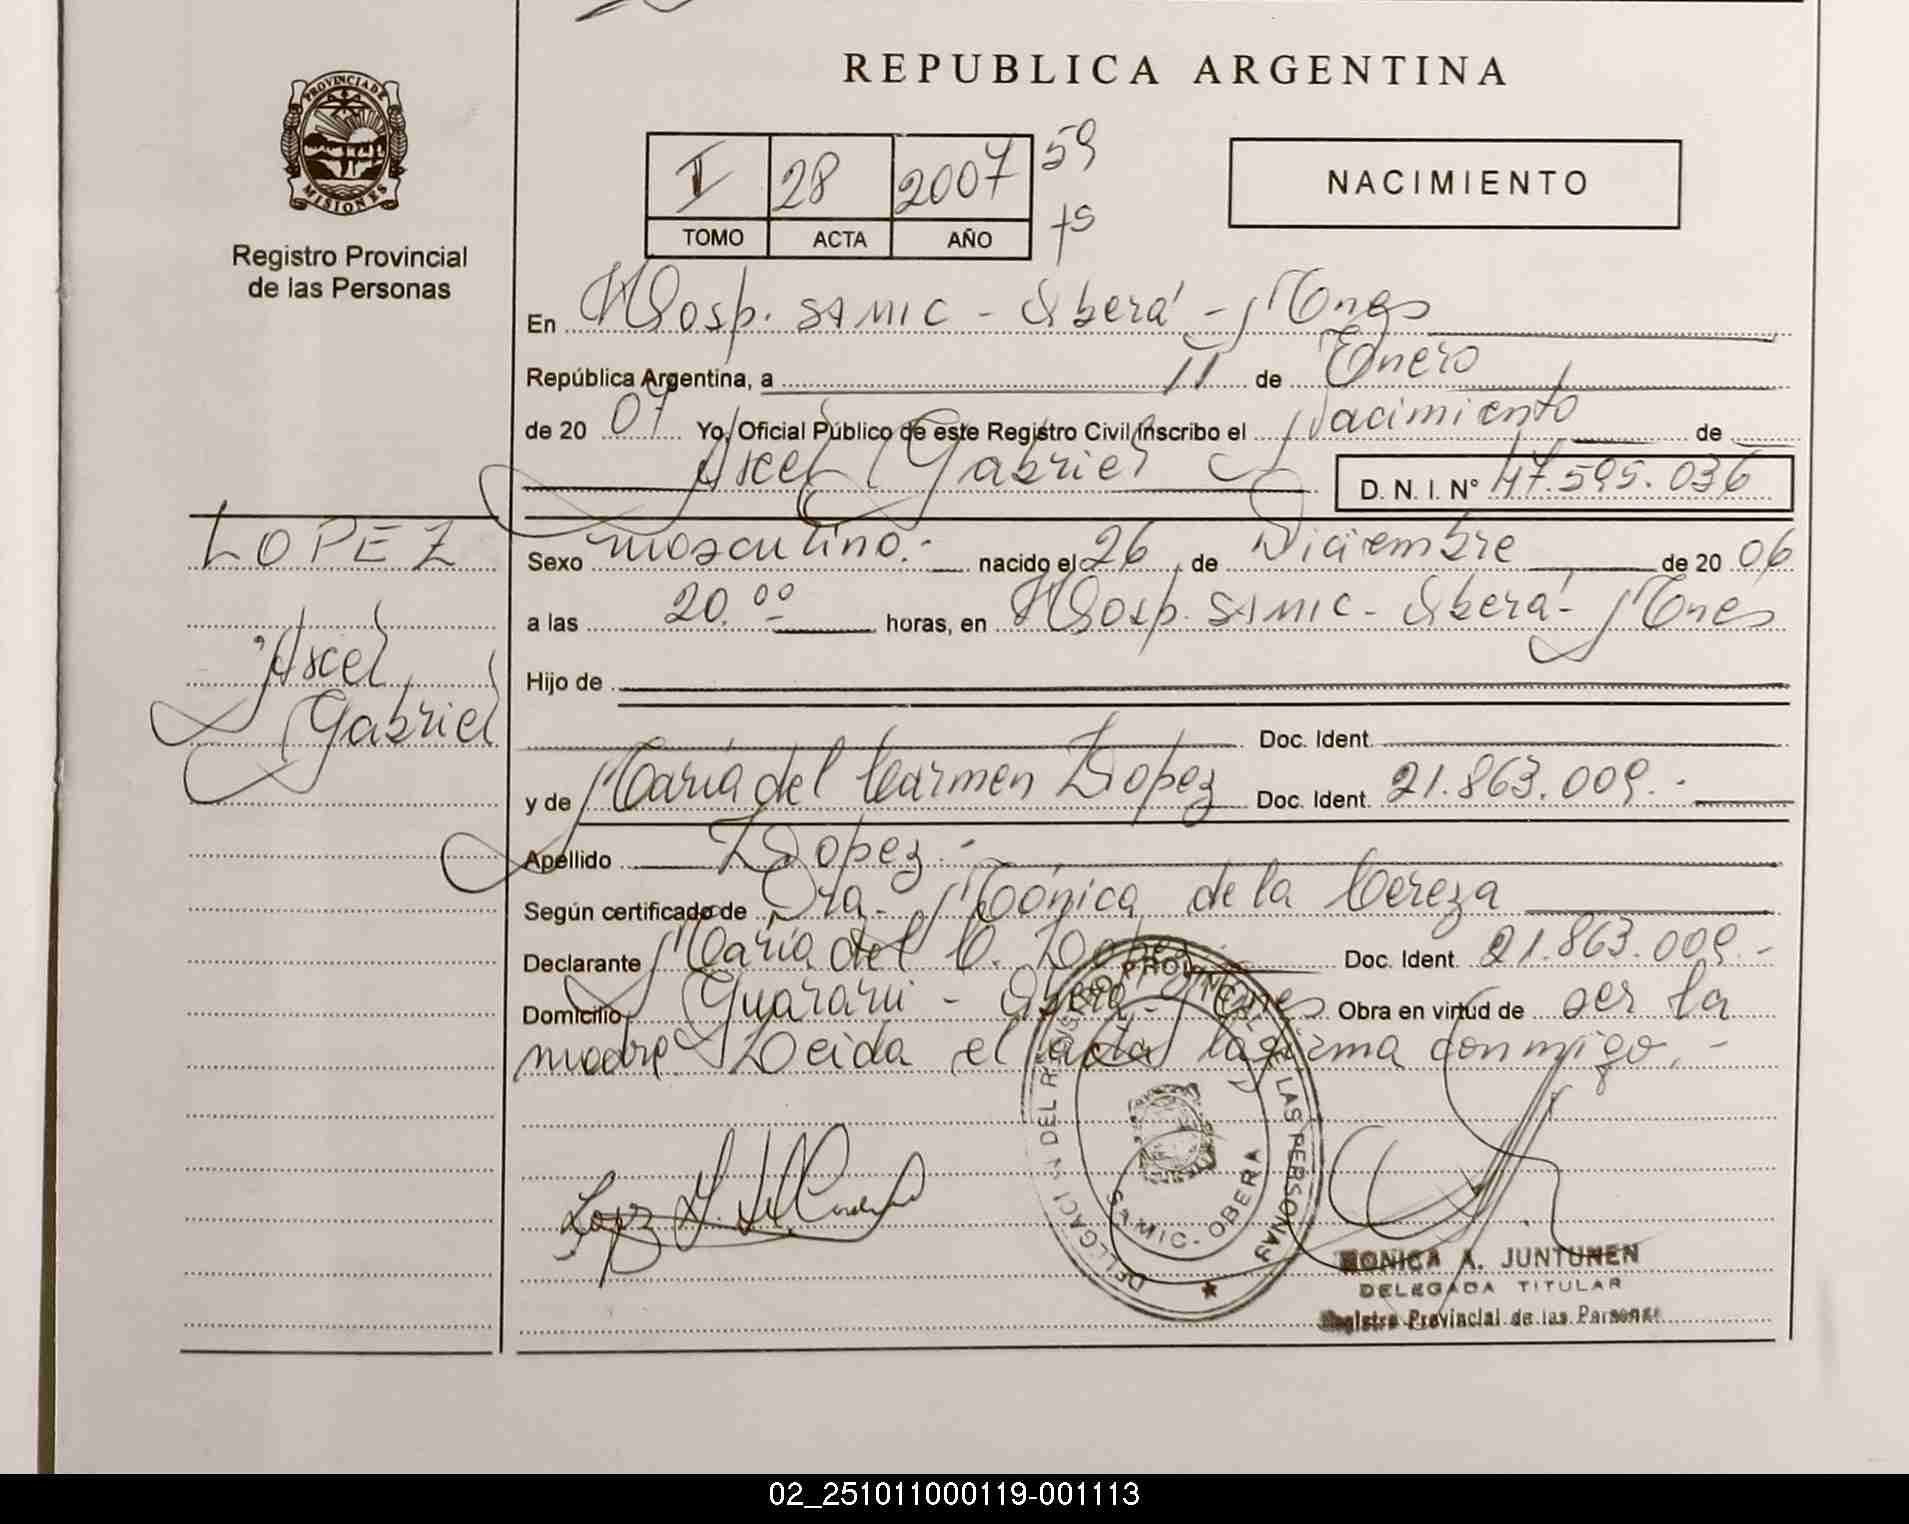 REPUBLICA ARGENTINA
PROVINCIA DE MISIONES
Registro Provincial
de las Personas
I 28 2007 59
TOMO ACTA AÑO
NACIMIENTO
En Hosp. SAMIC - Oberá - Mnes
República Argentina, a 11 de Enero
de 20 07 Yo, Oficial Público de este Registro Civil inscribo el Nacimiento de
Axel Gabriel D. N. I. N° 47.595.036
LOPEZ
Axel
Gabriel
Sexo masculino.- nacido el 26 de Diciembre de 20 06
a las 20.00 horas, en Hosp. SAMIC - Oberá - Mnes
Hijo de
Doc. Ident.
y de María del Carmen Lopez Doc. Ident. 21.863.009.-
Apellido Lopez.-
Según certificado de Dra. Mónica de la Cereza
Declarante María del C. Lopez Doc. Ident. 21.863.009.-
Domicilio Guaraní - Oberá - Mnes Obra en virtud de ser la
madre. Leída el acta la firma conmigo.-
DELEGACION DEL REGISTRO PROVINCIAL DE LAS PERSONAS
SAMIC - OBERA
MONICA A. JUNTUNEN
DELEGADA TITULAR
Registro Provincial de las Personas
02_251011000119-001113